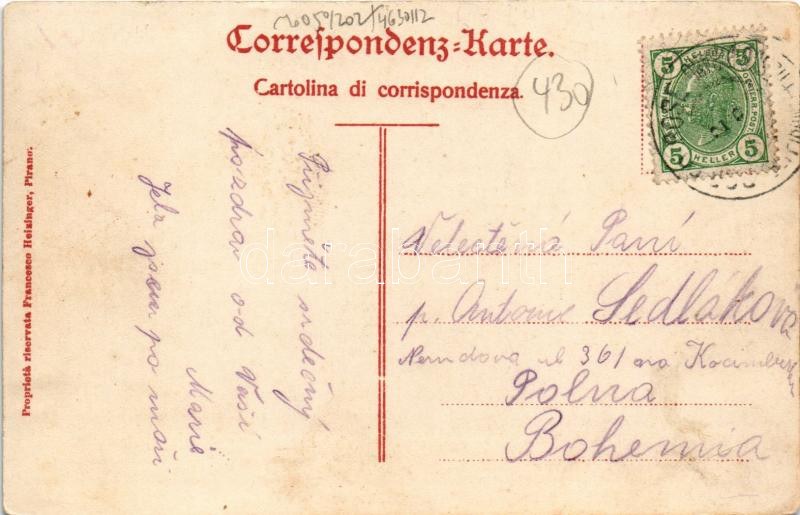 2605D/202/4630112
Correspondenz-Karte.
Cartolina di corrispondenza.
430
5 5
5 HELLER 5
Proprietà riservata Francesco Heizinger, Pirano.
Přijměte srdečný
pozdrav od Vaší
Marie
Jela jsem po moři
Velectěná Paní
p. Antonie Sedlakova
Nerudova ul 361
Polna
Bohemia
darabanth